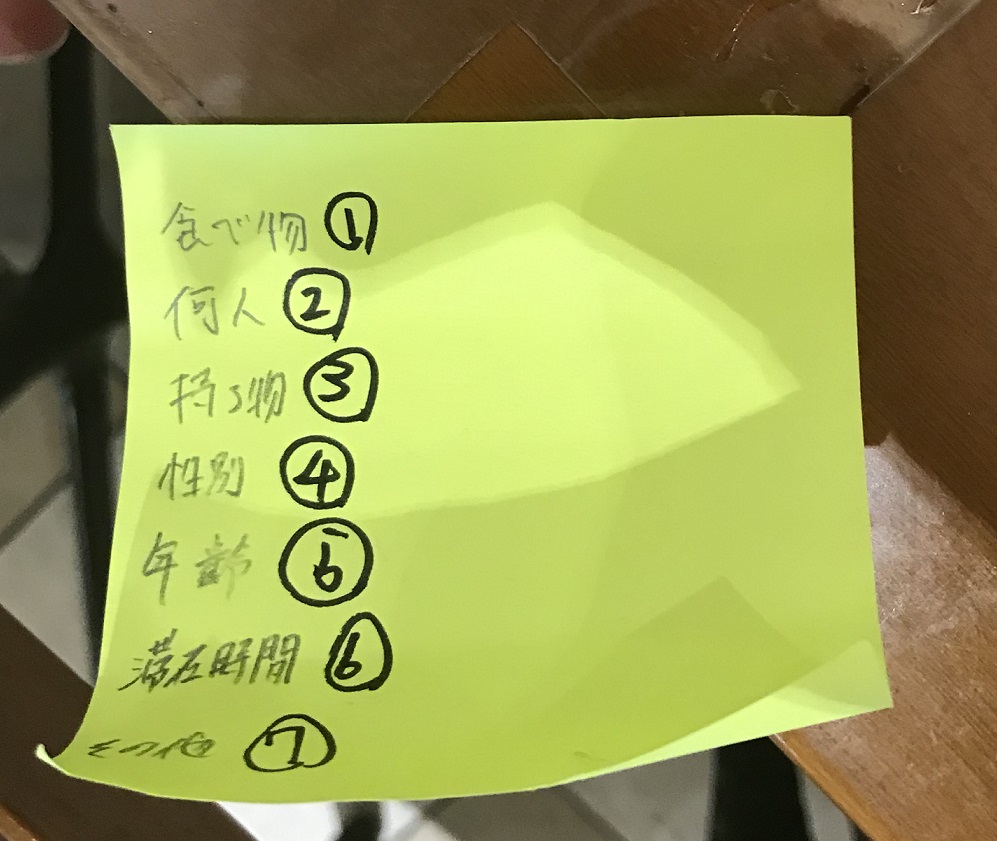 食べ物 ①
何人 ②
持ち物 ③
性別 ④
年齢 ⑤
滞在時間 ⑥
その他 ⑦